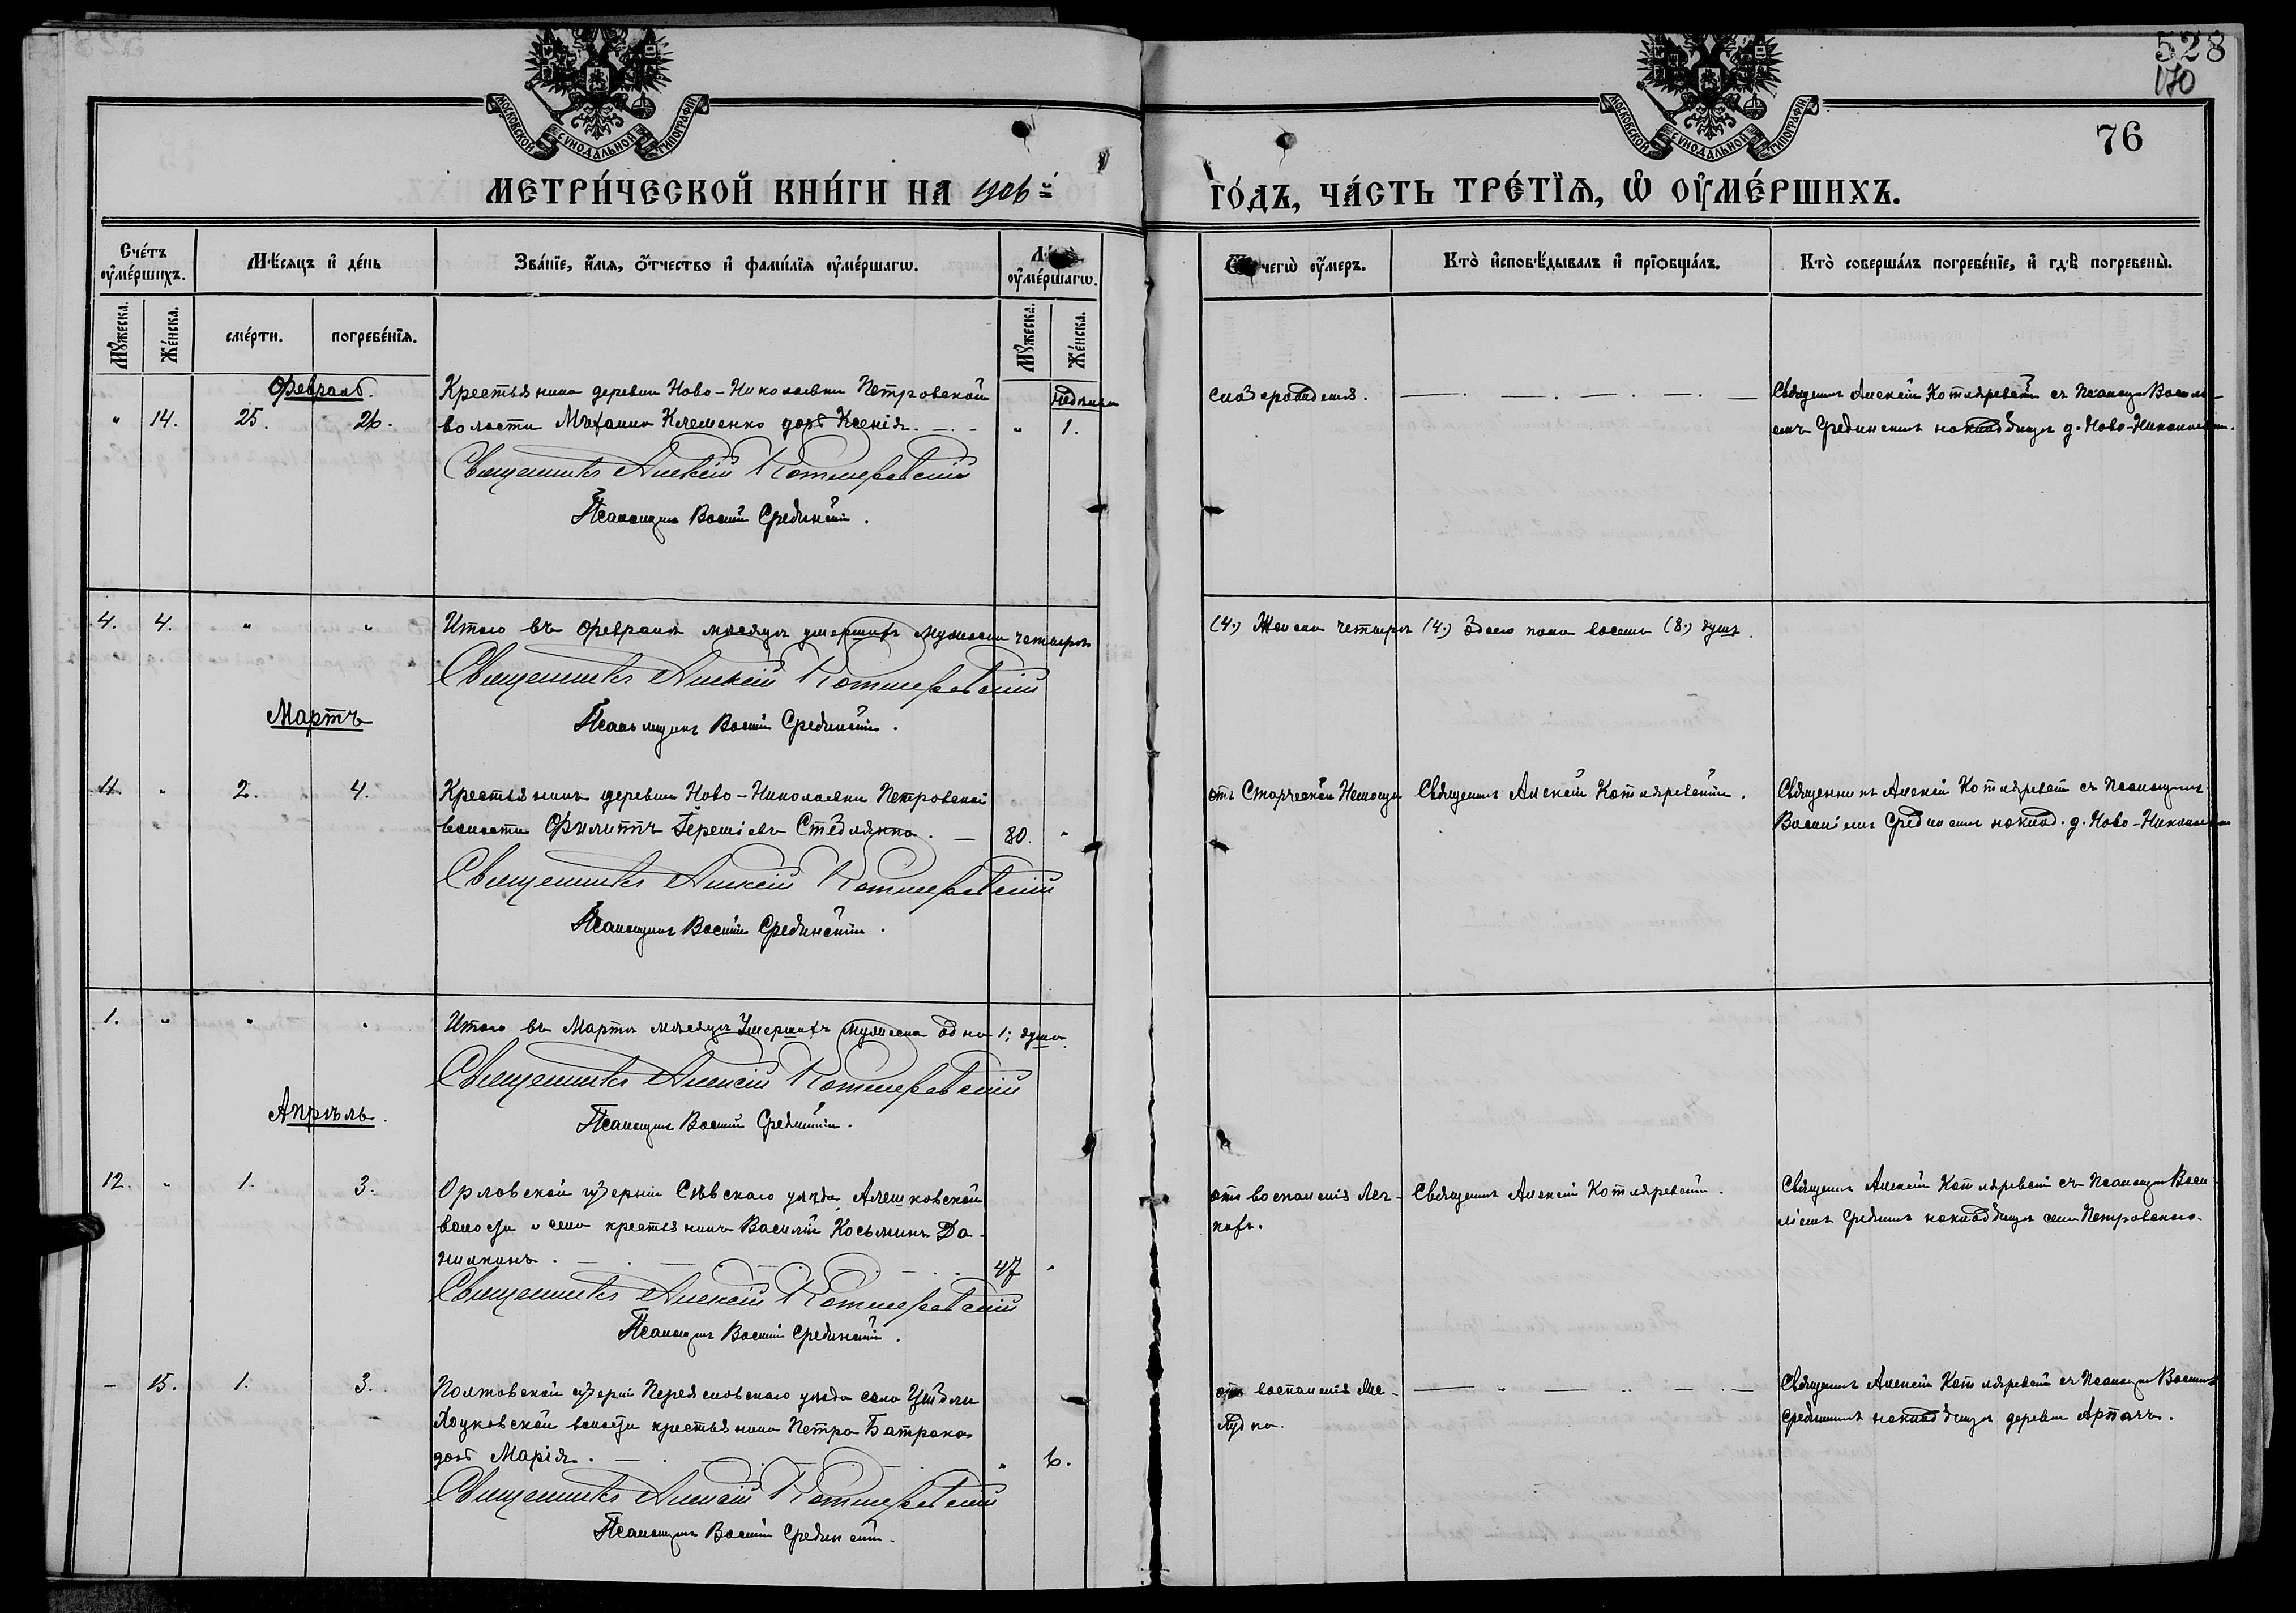 528
170
76
МОСКОВСКОЙ СѴНОДАЛЬНОЙ ТИПОГРАФІИ
МОСКОВСКОЙ СѴНОДАЛЬНОЙ ТИПОГРАФІИ
МЕТРИ́ЧЕСКОЙ КНИ́ГИ НА 1906й
ГО́ДЪ, ЧА́СТЬ ТРЕ́ТІѦ, Ѡ ОУМЕ́РШИХЪ.
Сче́тъ оумéршихъ.
Мѣ́сяцъ и де́нь
Зва́ніе, и́мя, о́тчество и фами́лія оумéршагѡ.
оумéршагѡ.
чегѡ̀ оу́меръ.
Кто̀ исповѣ́дывалъ и пріобща́лъ.
Кто̀ соверша́лъ погребе́ніе, и гдѣ̀ погребены̀.
Мꙋ́жеска.
Же́нска.
сме́рти.
погребе́нія.
Мꙋ́жеска.
Же́нска.
Февраль.
" 14. 25. 26.
Крестьянина деревни Ново-Николаевки Петровской
волости Клеменко дочь Ксенія.
" 1.
Священникъ Алексій Котляревскій
Псаломщикъ Василій Срединскій.
слаборожденія.
Священникъ Алексій Котляревскій съ Псаломщ. Василі-
емъ Срединскимъ на кладбищѣ д. Ново-Николаевки.
4. 4. " "
Итого въ Февралѣ мѣсяцѣ умершихъ мужеска четыре
(4.) Женска четыре (4.) Обоего пола восемь (8.) душъ.
Священникъ Алексій Котляревскій
Псаломщикъ Василій Срединскій.
Мартъ
11. " 2. 4.
Крестьянинъ деревни Ново-Николаевки Петровской
волости Филиппъ
80. "
Священникъ Алексій Котляревскій
Псаломщикъ Василій Срединскій.
отъ Старческой Немощи
Священникъ Алексій Котляревскій.
Священникъ Алексій Котляревскій съ Псаломщикомъ
Василіемъ Срединскимъ на клад. д. Ново-Николаевки
1. " " "
Итого въ Мартѣ мѣсяцѣ Умершихъ мужеска одна 1; душа.
Священникъ Алексій Котляревскій
Псаломщикъ Василій Срединскій.
Апрѣль.
12. " 1. 3.
Орловской губерніи Сѣвскаго уѣзда Алешковской
волости и села крестьянинъ Василій Косьминъ Да-
нилкинъ.
47 "
Священникъ Алексій Котляревскій
Псаломщикъ Василій Срединскій.
отъ воспаленія Лег-
кихъ.
Священникъ Алексій Котляревскій.
Священникъ Алексій Котляревскій съ Псаломщ. Васи-
ліемъ Срединск. на кладбищѣ села Петровскаго.
– 15. 1. 3.
Полтавской губерніи Переяславскаго уѣзда села
волости крестьянина Петра Батрака
дочь Марія.
" 6.
Священникъ Алексій Котляревскій
Псаломщикъ Василій Срединскій.
отъ воспаленія Же-
лудка.
Священникъ Алексій Котляревскій съ Псаломщ. Василіемъ
Срединскимъ на кладбищѣ деревни Артачь.